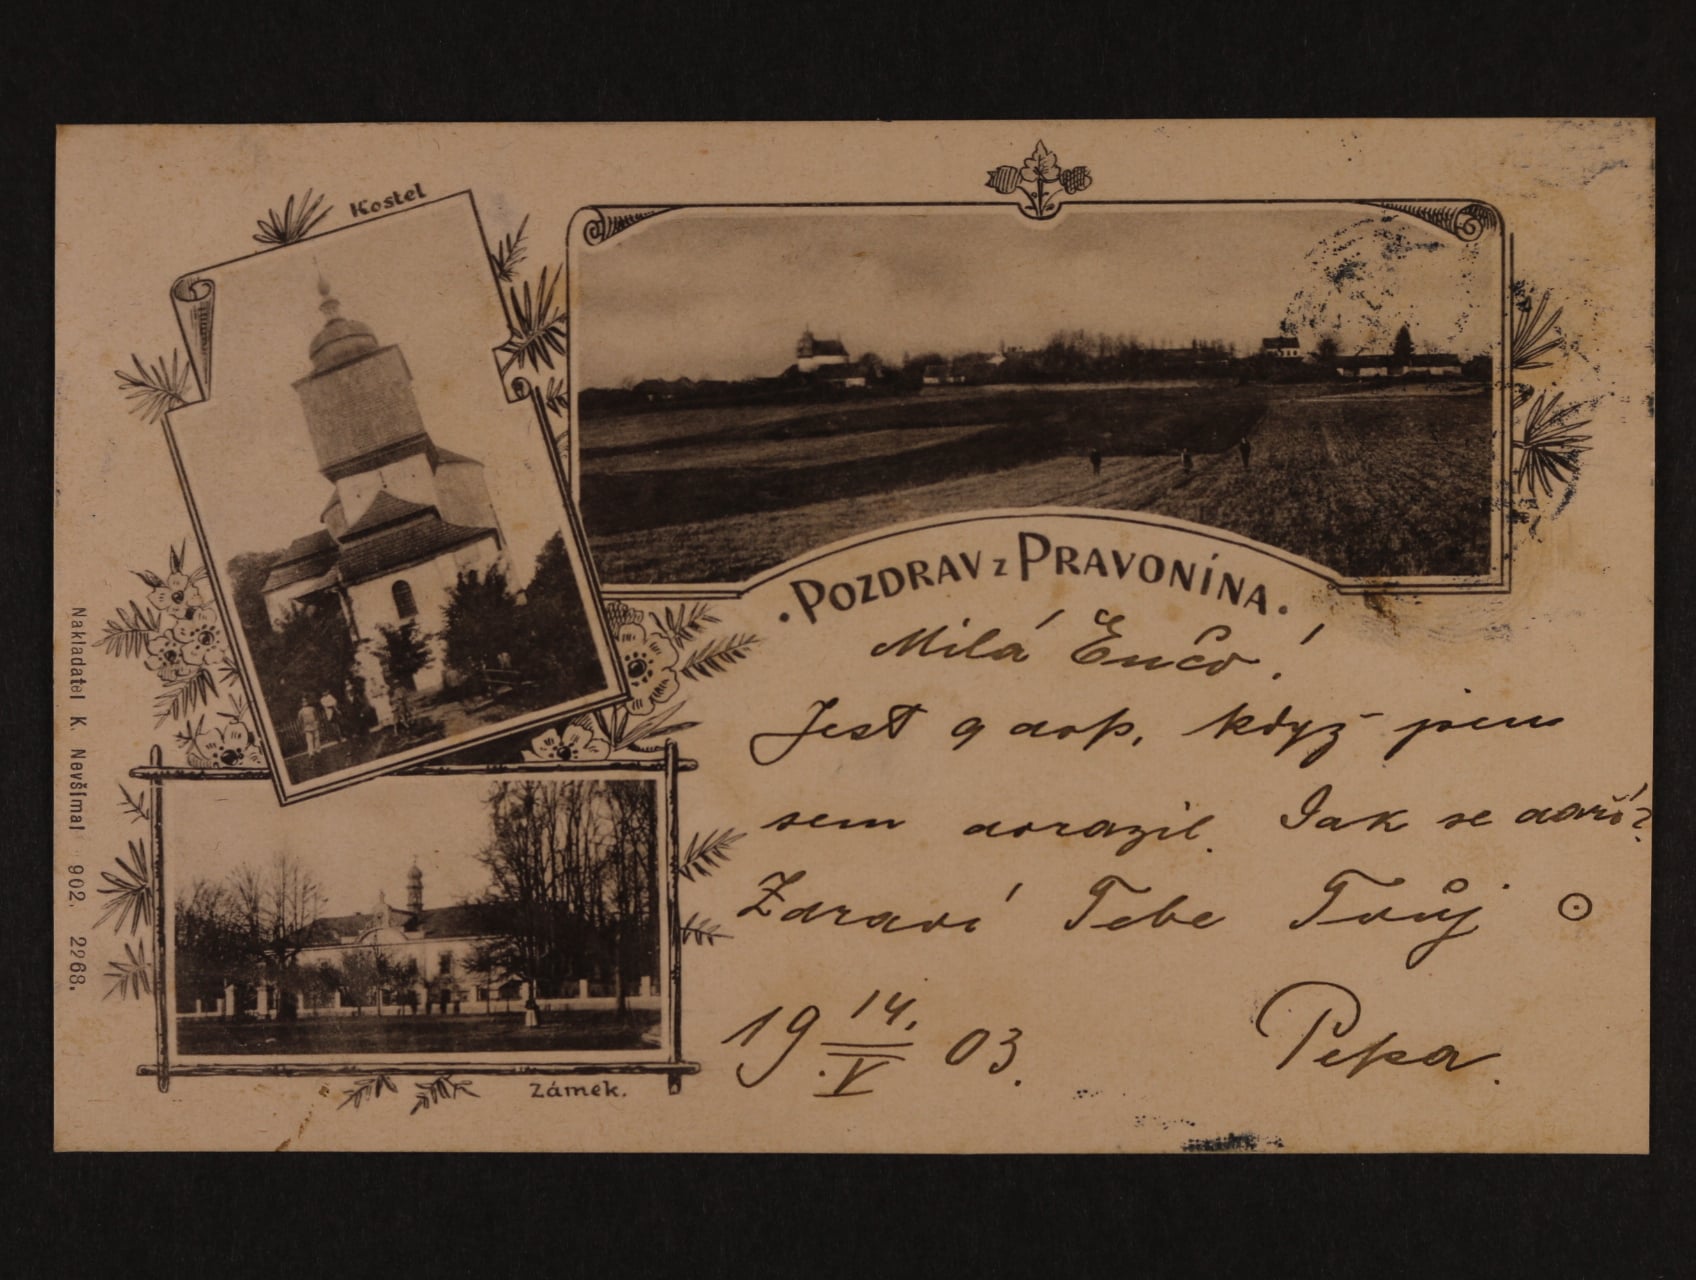 Kostel
POZDRAV Z PRAVONÍNA.
Milá Enčo!
Jest 9 dop., když jsem
sem dorazil. Jak se daří?
Zdraví Tebe Tvůj
19 14./V 03.
Pepa.
Zámek.
Nakladatel K. Nevšímal 902. 2268.